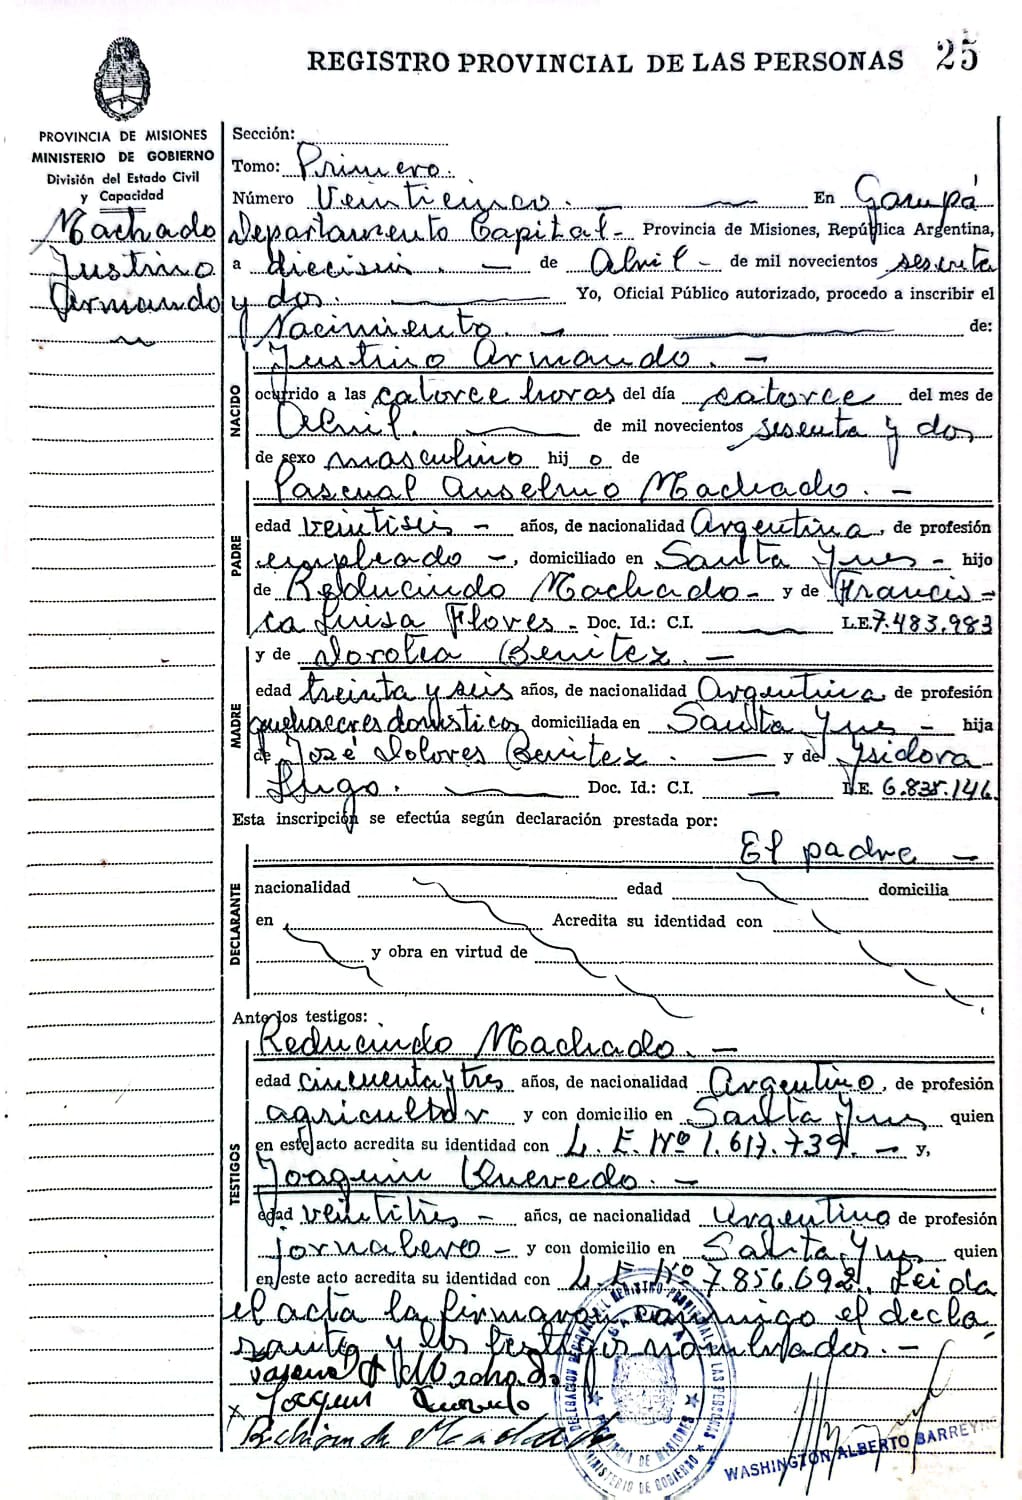 REGISTRO PROVINCIAL DE LAS PERSONAS 25
PROVINCIA DE MISIONES
MINISTERIO DE GOBIERNO
División del Estado Civil
y Capacidad
Machado
Justino
Armando
Sección:
Tomo: Primero.
Número Veinticinco. — En Garupá
Departamento Capital - Provincia de Misiones, República Argentina,
a dieciseis. — de Abril - de mil novecientos sesenta
y dos. — Yo, Oficial Público autorizado, procedo a inscribir el
Nacimiento. — de:
Justino Armando. —
NACIDO
ocurrido a las catorce horas del día catorce del mes de
Abril. — de mil novecientos sesenta y dos
de sexo masculino hij o de
Pascual Anselmo Machado. —
PADRE
edad veintiseis - años, de nacionalidad Argentina, de profesión
empleado -, domiciliado en Santa Ynes - hijo
de Reducindo Machado - y de Francis-
ca Luisa Flores - Doc. Id.: C.I. — L.E. 7.483.983
y de Dorotea Benitez. —
MADRE
edad treinta y seis años, de nacionalidad Argentina, de profesión
quehaceres domésticos domiciliada en Santa Ynes - hija
de José Dolores Benitez. — y de Ysidora
Lugo. — Doc. Id.: C.I. — L.E. 6.835.146.
Esta inscripción se efectúa según declaración prestada por:
El padre —
DECLARANTE
nacionalidad edad domicilia
en Acredita su identidad con
y obra en virtud de
Ante los testigos:
Reducindo Machado. —
TESTIGOS
edad cincuenta y tres años, de nacionalidad Argentino, de profesión
agricultor y con domicilio en Santa Ynes quien
en este acto acredita su identidad con L. E. Nº 1.617.739. — y,
Joaquin Quevedo. —
edad veintitres - años, de nacionalidad Argentino de profesión
jornalero - y con domicilio en Santa Ynes quien
en este acto acredita su identidad con L. E. Nº 7.856.692. Leida
el acta la firmaron conmigo el decla
rante y los testigos nombrados. —
Machado
x Joaquin Quevedo
PROVINCIA DE MISIONES
MINISTERIO DE GOBIERNO
WASHINGTON ALBERTO BARREYRO